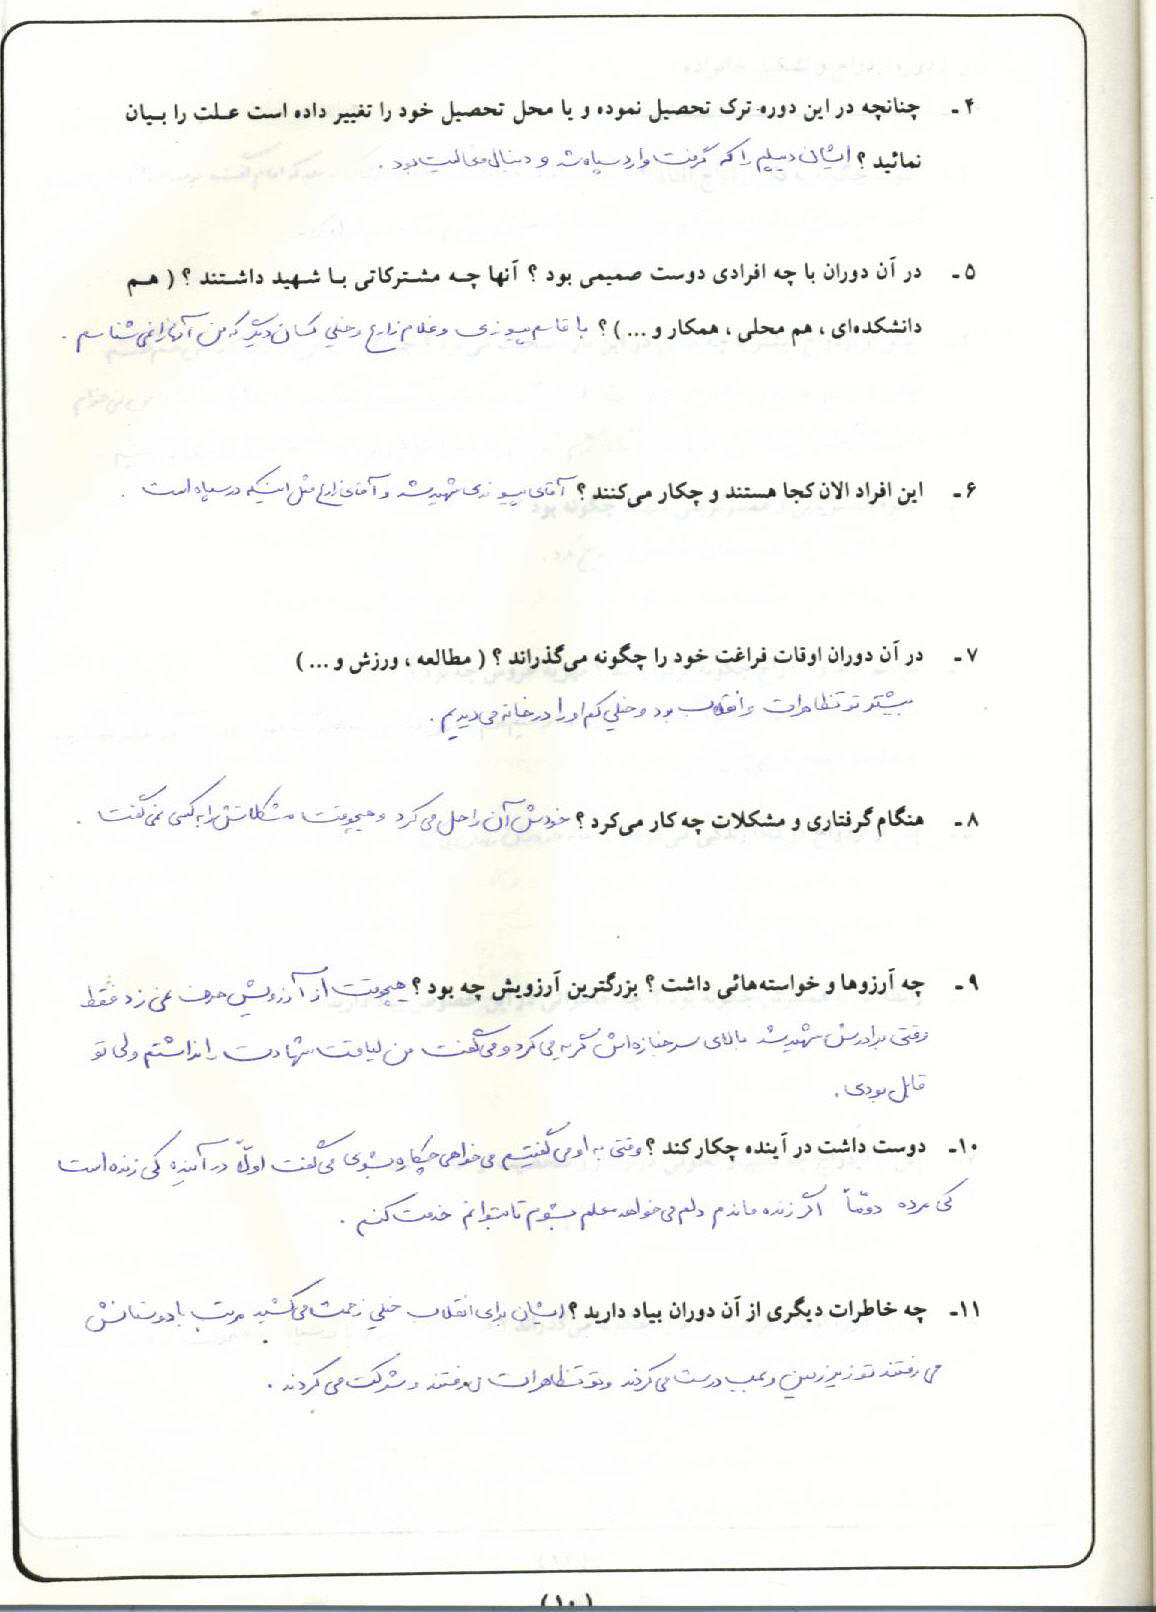 ۴ـ چنانچه در این دوره ترک تحصیل نموده و یا محل تحصیل خود را تغییر داده است علت را بیان
نمائید ؟ ایشان دیپلم را که گرفت وارد سپاه شد و دنبال فعالیت بود .
۵ـ در آن دوران با چه افرادی دوست صمیمی بود ؟ آنها چه مشترکاتی با شهید داشتند ؟ ( هم
دانشکده‌ای ، هم محلی ، همکار و ... ) ؟ با قاسم و غلام زارع و خیلی کسان دیگر که من آنها را نمی شناسم .
۶ـ این افراد الان کجا هستند و چکار می‌کنند ؟ آقای شهید شد و آقای زارع مثل اینکه در سپاه است .
۷ـ در آن دوران اوقات فراغت خود را چگونه می‌گذراند ؟ ( مطالعه ، ورزش و ... )
بیشتر تو تظاهرات و انقلاب بود و خیلی کم او را در خانه می دیدیم .
۸ـ هنگام گرفتاری و مشکلات چه کار می‌کرد ؟ خودش آن را حل می کرد و هیچوقت مشکلاتش را به کسی نمی گفت .
۹ـ چه آرزوها و خواسته‌هائی داشت ؟ بزرگترین آرزویش چه بود ؟ هیچوقت از آرزویش حرف نمی زد فقط
وقتی برادرش شهید شد بالای سر جنازه اش گریه می کرد و می گفت من لیاقت شهادت را نداشتم ولی تو
قابل بودی .
۱۰ـ دوست داشت در آینده چکار کند ؟ وقتی به او می گفتیم می خواهی چکاره بشوی می گفت اولاً در آینده کی زنده است
کی مرده دوماً اگر زنده ماندم دلم می خواهد معلم بشوم تا بتوانم خدمت کنم .
۱۱ـ چه خاطرات دیگری از آن دوران بیاد دارید ؟ ایشان برای انقلاب خیلی زحمت می کشید مرتب با دوستانش
می رفتند تو زیرزمین و بمب درست می کردند و تو تظاهرات می رفتند و شرکت می کردند .
(۱۰)